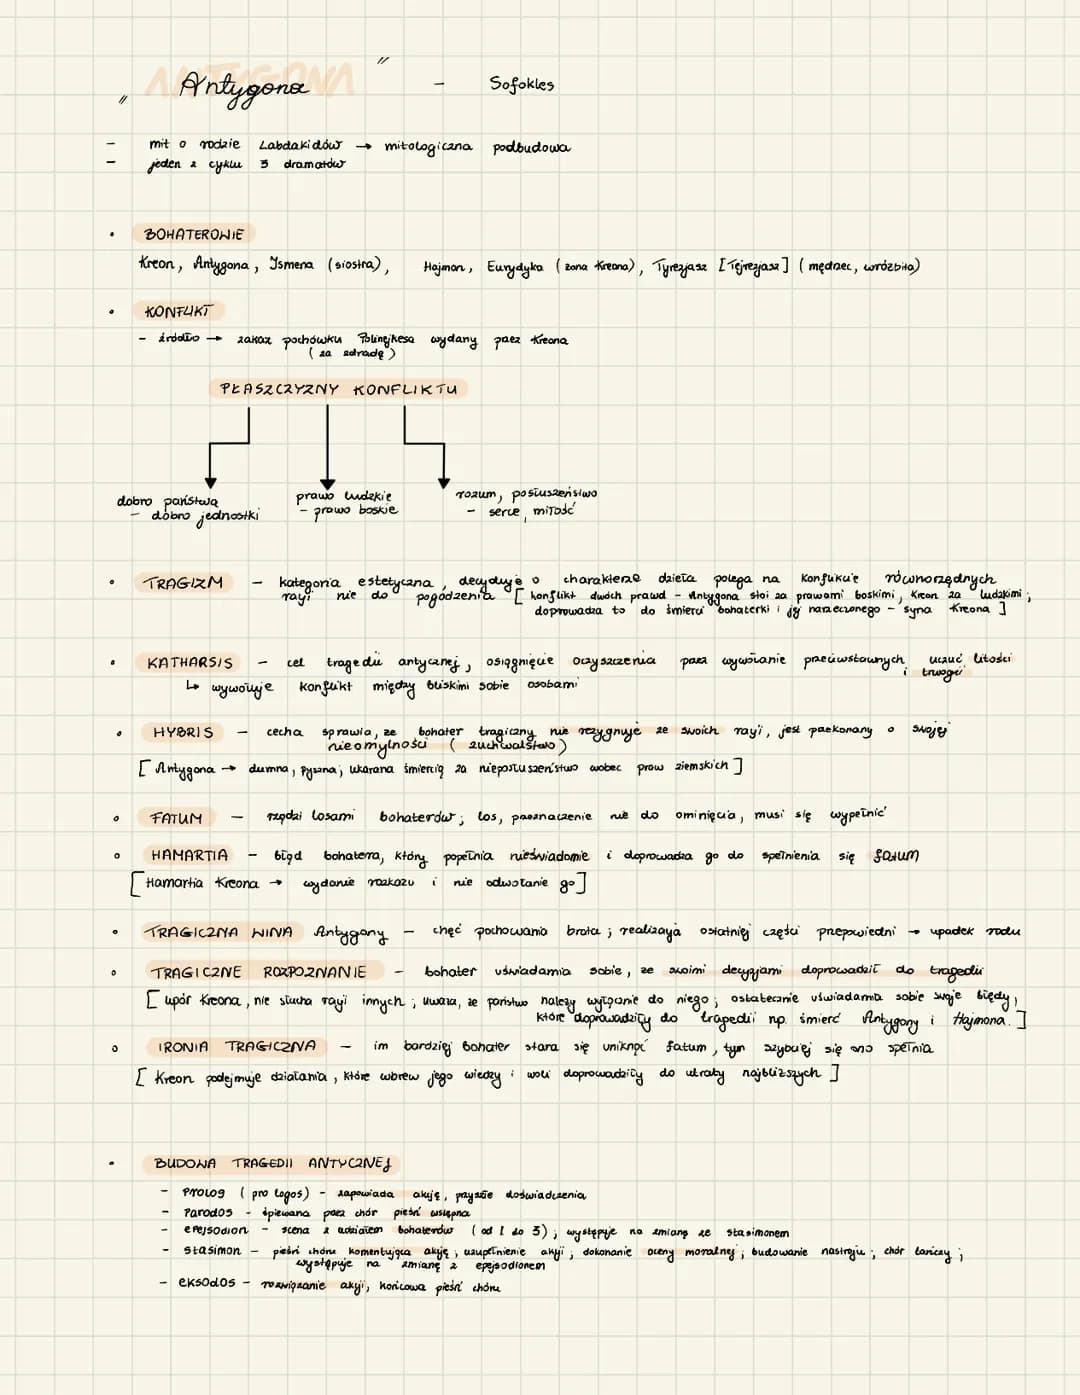 ANTYGONA
"Antygona" - Sofokles
- mit o rodzie Labdakidów → mitologiczna podbudowa
- jeden z cyklu 3 dramatów
• BOHATEROWIE
Kreon, Antygona, Ismena (siostra), Hajmon, Eurydyka (żona Kreona), Tyrezjasz [Tejrezjasz] (mędrzec, wróżbita)
• KONFLIKT
- źródło → zakaz pochówku Polinejkesa wydany przez Kreona
(za zdradę)
PŁASZCZYZNY KONFLIKTU
dobro państwa
- dobro jednostki
prawo ludzkie
- prawo boskie
rozum, posłuszeństwo
- serce, miłość
• TRAGIZM - kategoria estetyczna, decyduje o charakterze dzieła polega na konflikcie równorzędnych
racji nie do pogodzenia [konflikt dwóch prawd - Antygona stoi za prawami boskimi, Kreon za ludzkimi;
doprowadza to do śmierci bohaterki i jej narzeczonego - syna Kreona]
• KATHARSIS - cel tragedii antycznej, osiągnięcie oczyszczenia przez wywołanie przeciwstawnych uczuć litości
i trwogi
↳ wywołuje konflikt między bliskimi sobie osobami
• HYBRIS - cecha sprawia, że bohater tragiczny nie rezygnuje ze swoich racji, jest przekonany o swojej
nieomylności (zuchwalstwo)
[Antygona → dumna, pyszna; ukarana śmiercią za nieposłuszeństwo wobec praw ziemskich]
• FATUM - rządzi losami bohaterów; los, przeznaczenie nie do ominięcia, musi się wypełnić
• HAMARTIA - błąd bohatera, który popełnia nieświadomie i doprowadza go do spełnienia się fatum
[Hamartia Kreona → wydanie rozkazu i nie odwołanie go]
• TRAGICZNA WINA Antygony - chęć pochowania brata; realizacja ostatniej części przepowiedni → upadek rodu
• TRAGICZNE ROZPOZNANIE - bohater uświadamia sobie, że swoimi decyzjami doprowadził do tragedii
[upór Kreona, nie słucha racji innych; uważa, że państwo należy wyłącznie do niego; ostatecznie uświadamia sobie swoje błędy,
które doprowadziły do tragedii np. śmierć Antygony i Hajmona.]
• IRONIA TRAGICZNA - im bardziej bohater stara się uniknąć fatum, tym szybciej się ono spełnia
[Kreon podejmuje działania, które wbrew jego wiedzy i woli doprowadziły do utraty najbliższych]
• BUDOWA TRAGEDII ANTYCZNEJ
- PROLOG (pro logos) - zapowiada akcję, przyszłe doświadczenia
- Parodos - śpiewana przez chór pieśń wstępna
- epejsodion - scena z udziałem bohaterów (od 1 do 3); występuje na zmianę ze stasimonem
- stasimon - pieśń chóru komentująca akcję; uzupełnienie akcji; dokonanie oceny moralnej; budowanie nastroju; chór tańczy;
występuje na zmianę z epejsodionem
- eksodos - rozwiązanie akcji, końcowa pieśń chóru